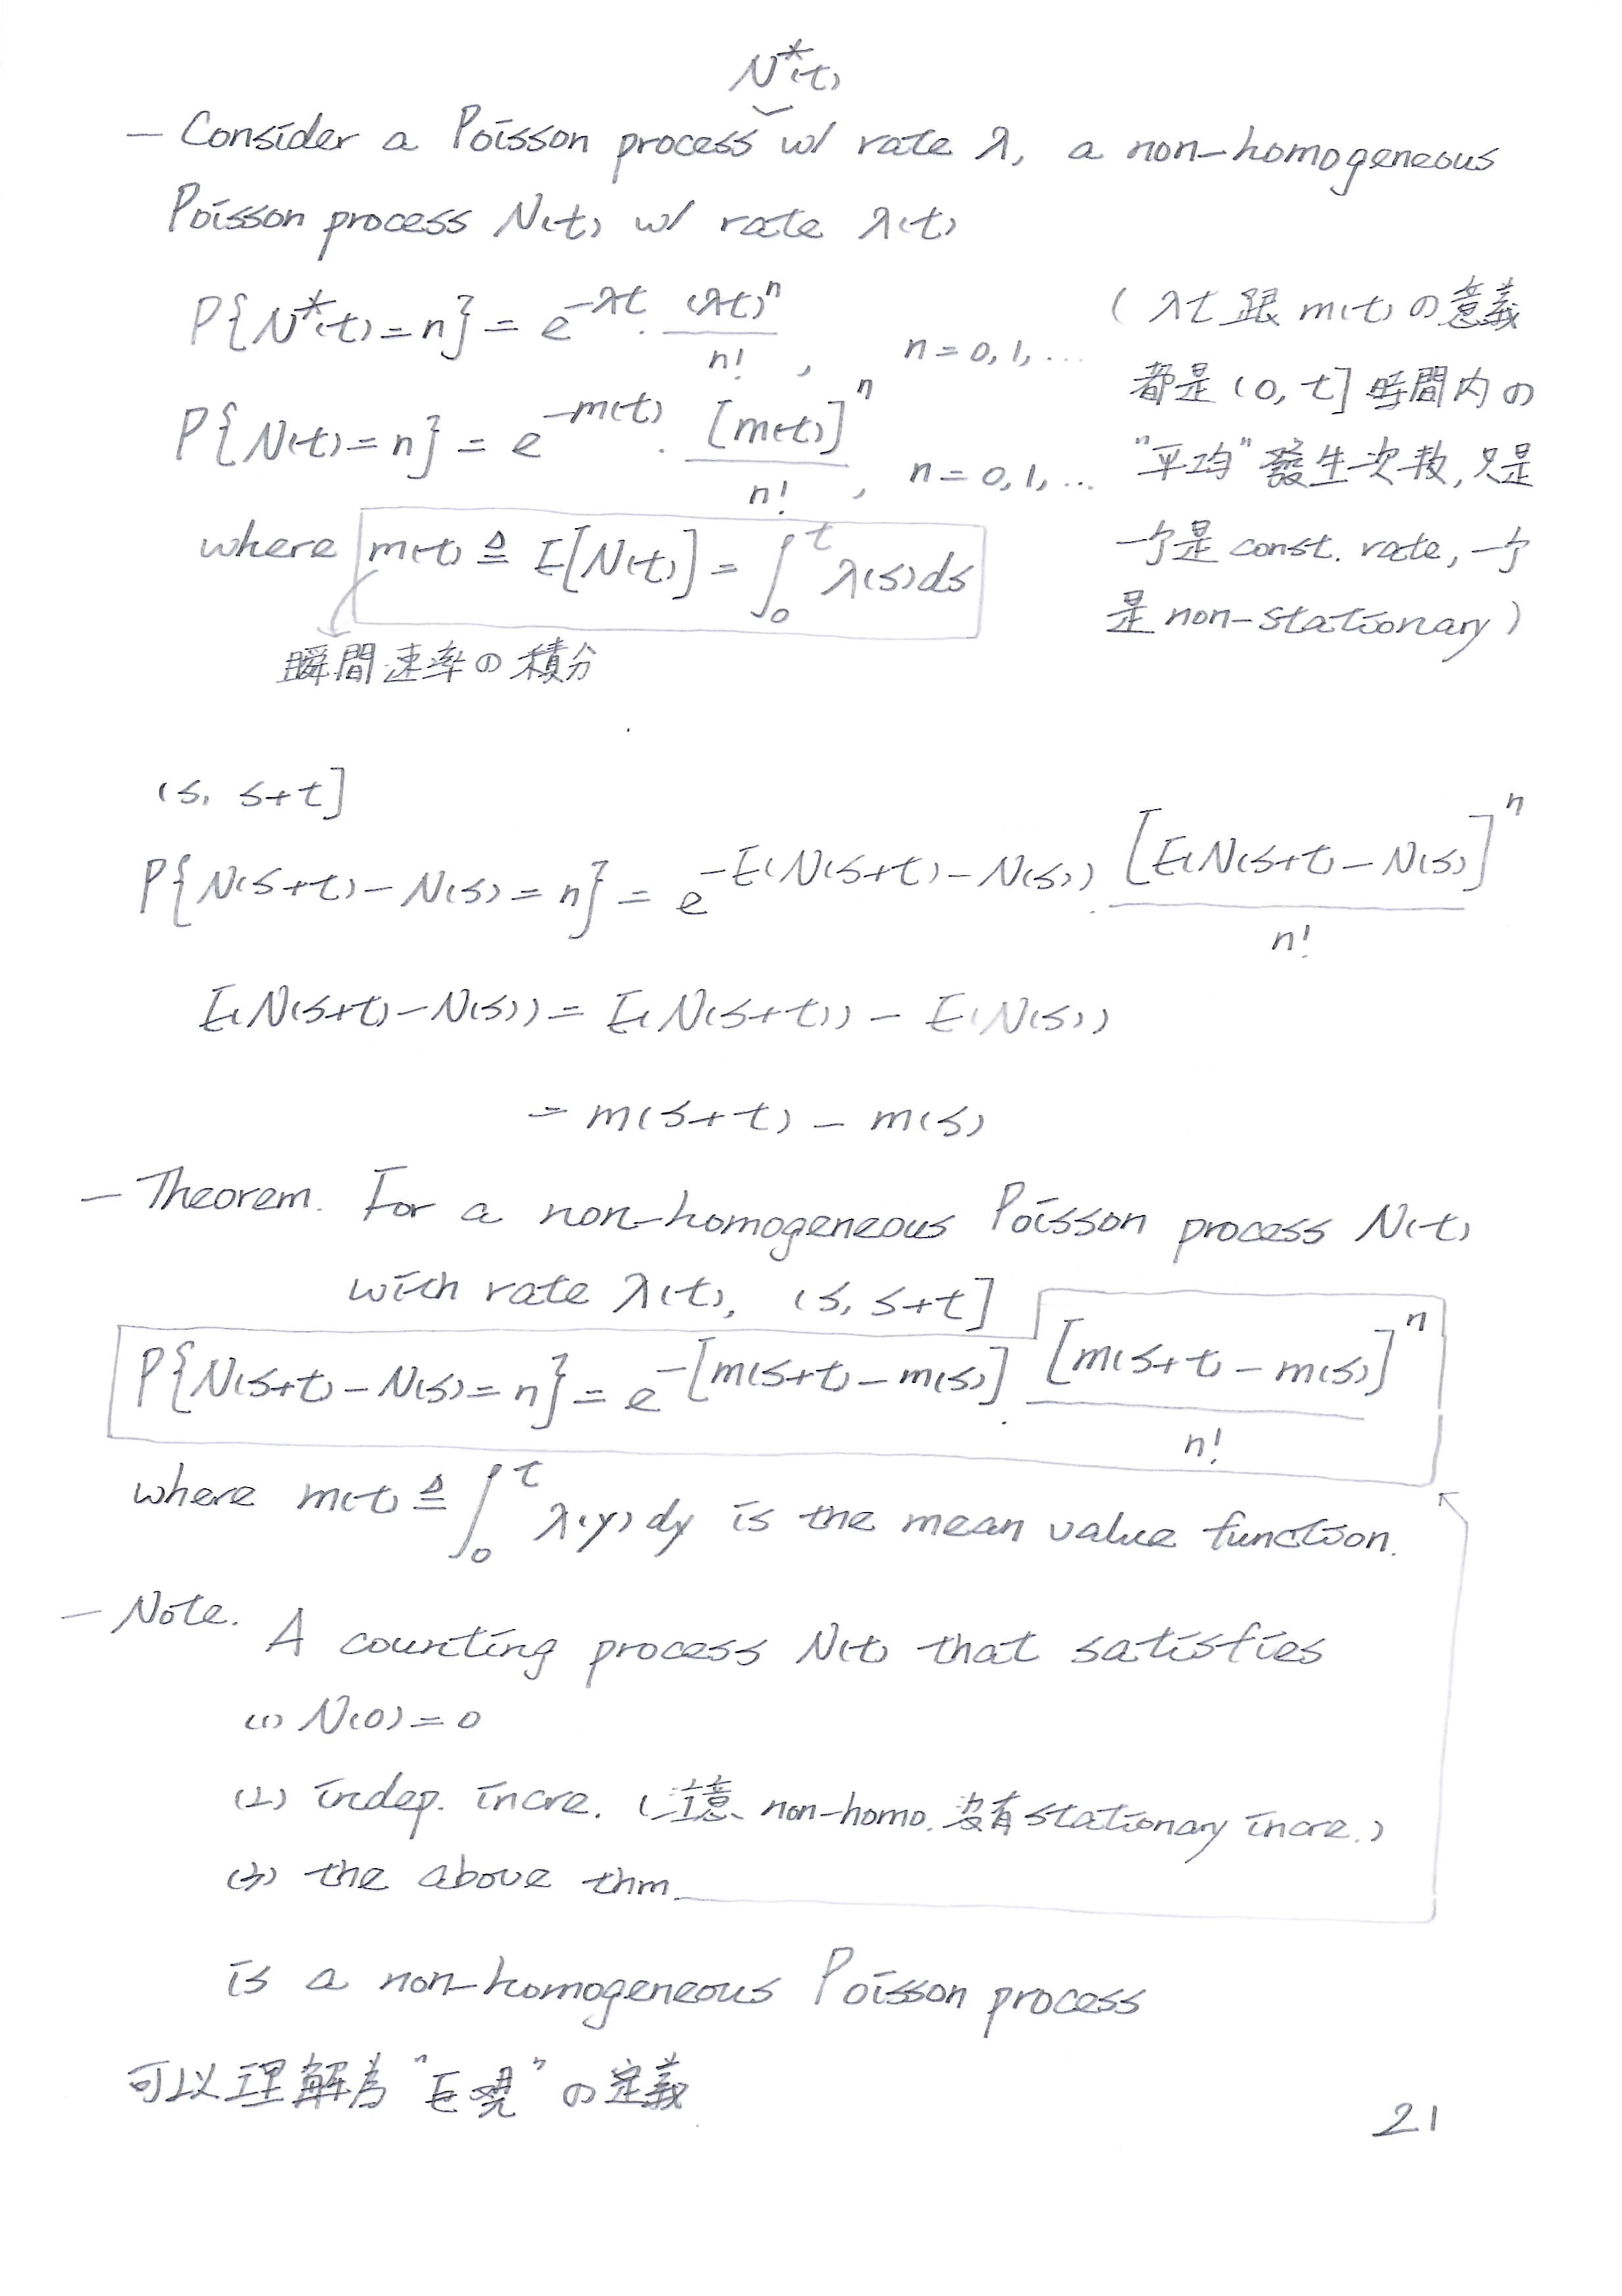 N*(t)
— Consider a Poisson process w/ rate λ, a non-homogeneous
Poisson process N(t) w/ rate λ(t)
P{N*(t)=n} = e^{-λt} · (λt)^n / n! , n=0,1,…
(λt 跟 m(t) の意義
都是 (0, t] 時間内の
P{N(t)=n} = e^{-m(t)} · [m(t)]^n / n! , n=0,1,…
"平均" 發生次數, 只是
where m(t) ≜ E[N(t)] = ∫_0^t λ(s)ds
一个是 const. rate, 一个
是 non-stationary)
瞬間速率の積分
(s, s+t]
P{N(s+t)-N(s)=n} = e^{-E(N(s+t)-N(s))} · [E(N(s+t)-N(s)]^n / n!
E(N(s+t)-N(s)) = E(N(s+t)) - E(N(s))
= m(s+t) - m(s)
— Theorem. For a non-homogeneous Poisson process N(t)
with rate λ(t), (s, s+t]
P{N(s+t)-N(s)=n} = e^{-[m(s+t)-m(s)]} · [m(s+t)-m(s)]^n / n!
where m(t) ≜ ∫_0^t λ(y)dy is the mean value function.
— Note. A counting process N(t) that satisfies
(1) N(0)=0
(2) indep. incre. (注意 non-homo. 沒有 stationary incre.)
(3) the above thm.
is a non-homogeneous Poisson process
可以理解為 " " の定義
21